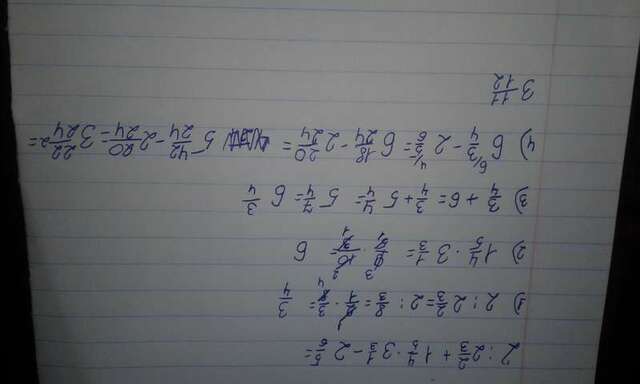 2 : 2 2/3 + 1 4/5 · 3 1/3 - 2 5/6 =
1) 2 : 2 2/3 = 2 : 8/3 = 2/1 · 3/8 = 3/4
2) 1 4/5 : 3 1/3 = 9/5 · 10/3 = 6
3) 3/4 + 6 = 3/4 + 5 4/4 = 5 7/4 = 6 3/4
4) 6 3/4 - 2 5/6 = 6 18/24 - 2 20/24 = 5 42/24 - 2 20/24 = 3 22/24 =
3 11/12